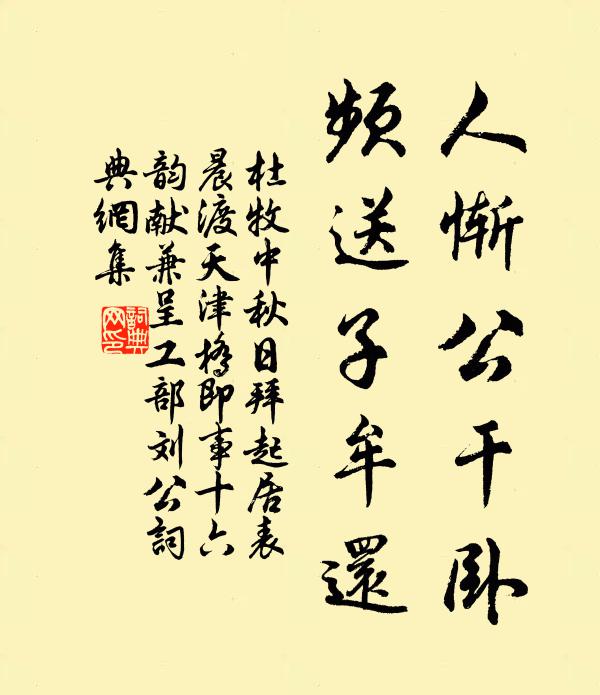 人慚公干卧
頻送子牟還
杜牧中秋日拜起居表
晨渡天津橋即事十六
韵献兼呈工部刘公詞
典網集
詞典
网印